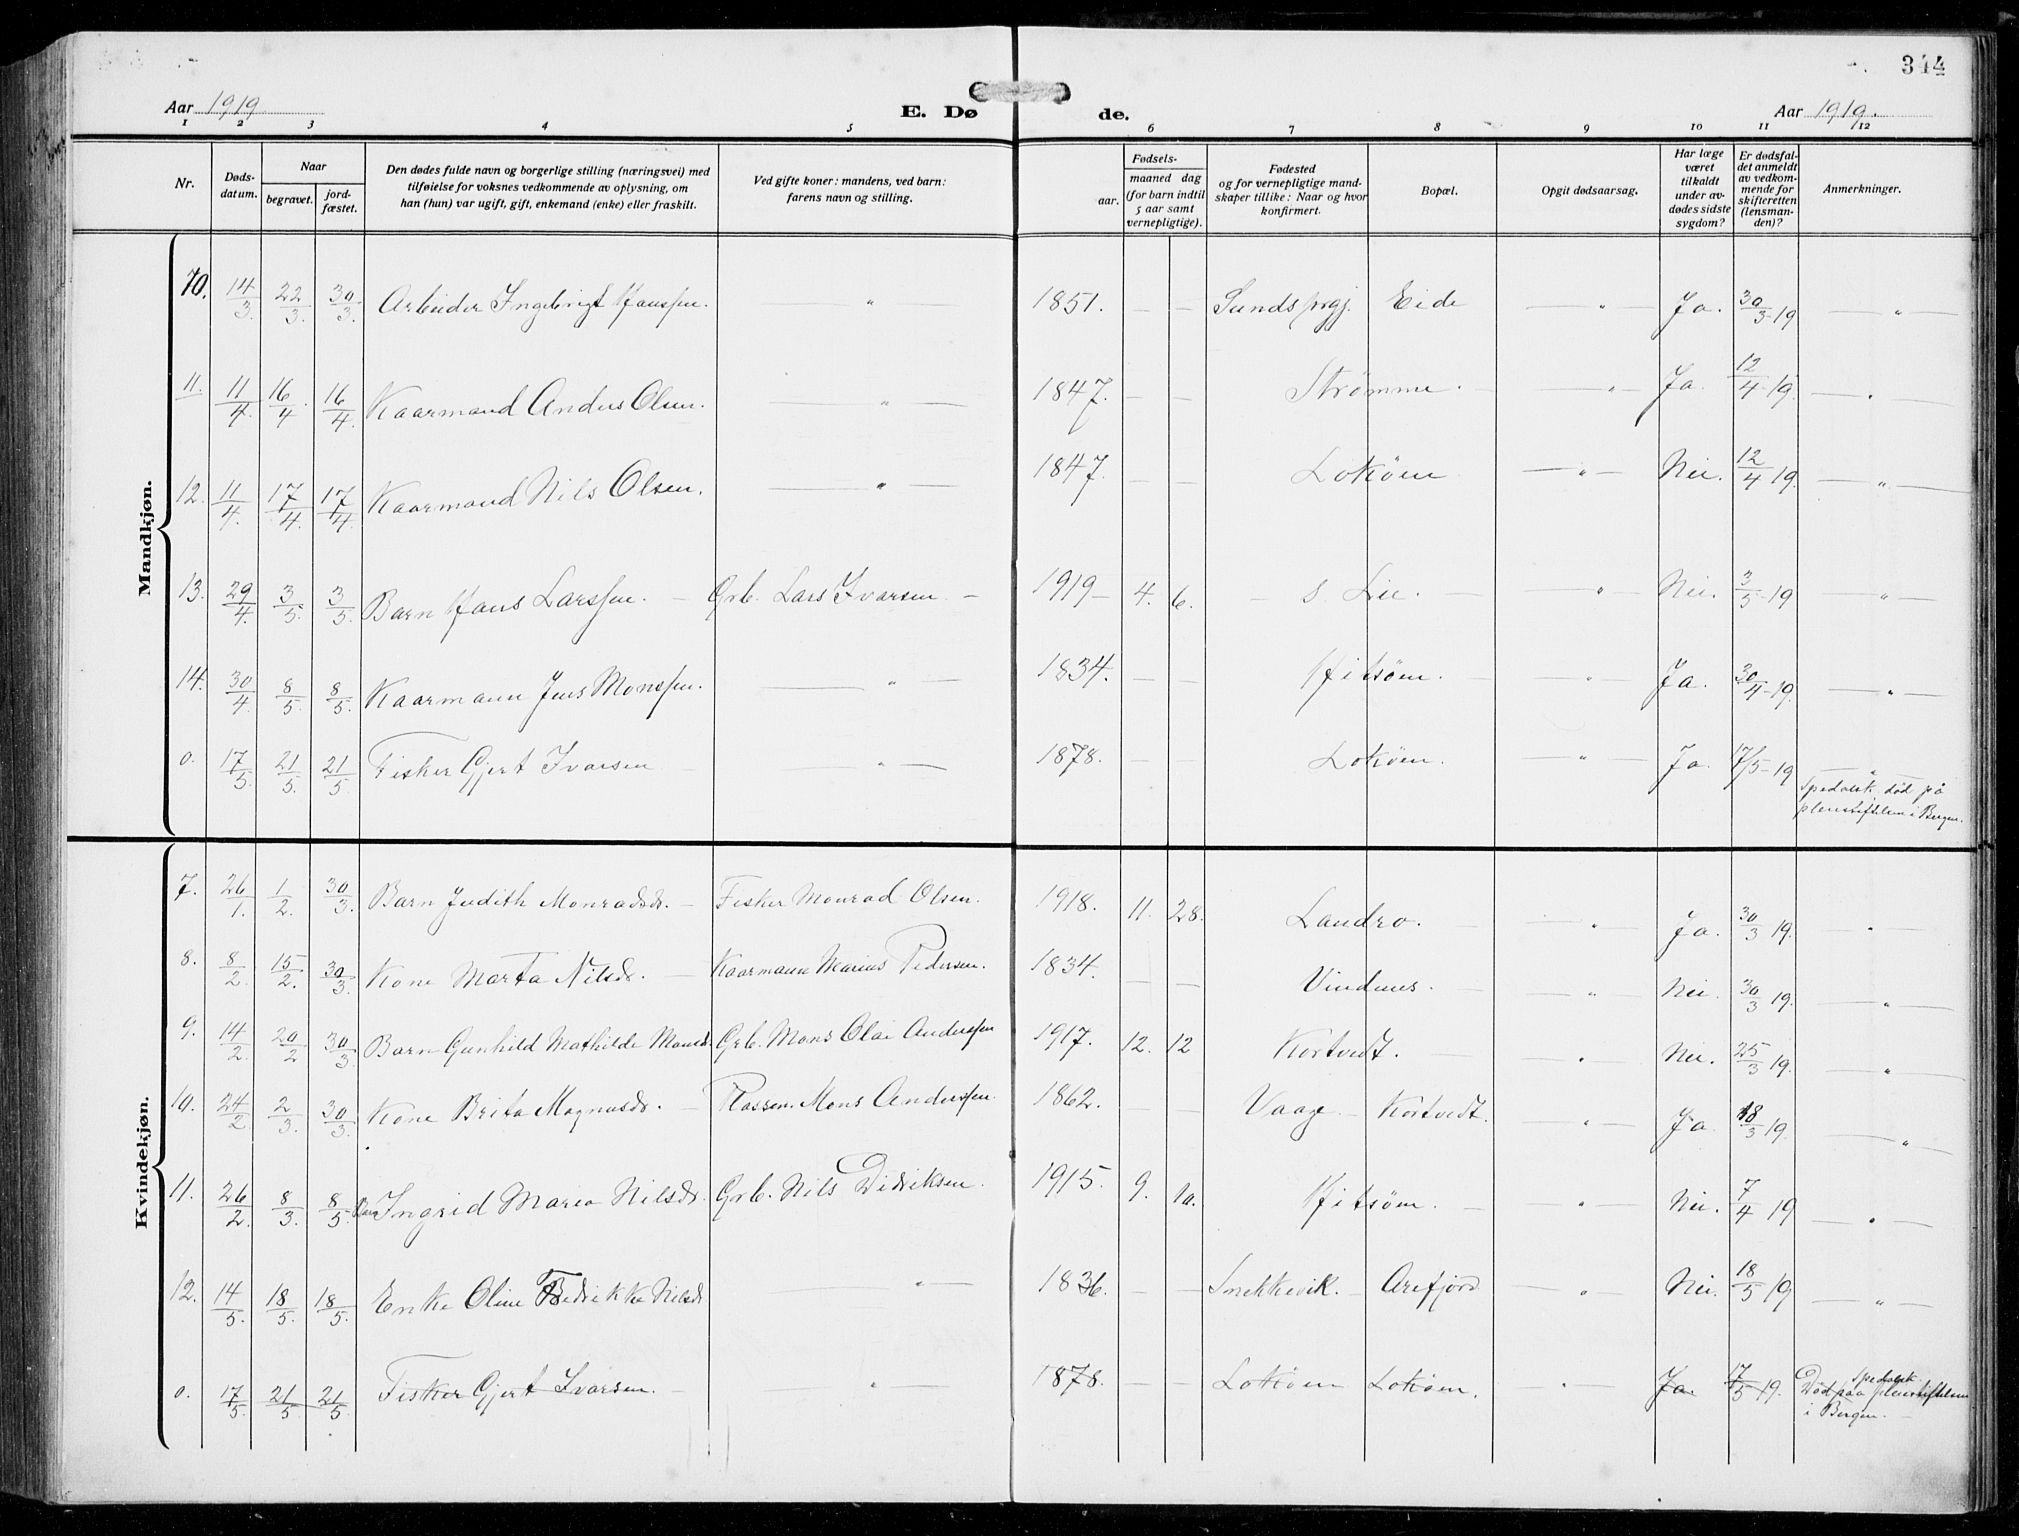 344
Aar 1919
E. Dø de.
Aar 1919.
1 2 3 4 5 6 7 8 9 10 11 12
Nr.
Dødsdatum.
Naar
begravet.
jordfæstet.
Den dødes fulde navn og borgerlige stilling (næringsvei) med
tilføielse for voksnes vedkommende av oplysning, om
han (hun) var ugift, gift, enkemand (enke) eller fraskilt.
Ved gifte koner: mandens, ved barn:
farens navn og stilling.
Fødsels-
aar.
maaned dag
(for barn indtil
5 aar samt
vernepligtige).
Fødested
og for vernepligtige mand-
skaper tillike: Naar og hvor
konfirmert.
Bopæl.
Opgit dødsaarsag.
Har læge
været
tilkaldt
under av-
dødes sidste
sygdom?
Er dødsfal-
det anmeldt
av vedkom-
mende for
skifteretten
(lensman-
den)?
Anmerkninger.
Mandkjøn.
10. 14/3. 22/3. 30/3. Arbeider Ingebrigt Hanssen. — " 1851. — — Sunds prgj. Eide — " — Ja. 30/3-19 — " —
11. 11/4. 16/4. 16/4. Kaarmand Anders Olsen. — " — 1847. — — Strømme. — — " — Ja. 12/4-19. — " —
12. 11/4. 17/4. 17/4. Kaarmand Nils Olsen. — " — 1847. — — Lokøen — " — Nei. 12/4 19. — " —
13. 29/4. 3/5. 3/5. Barn Hans Larssen. — Grb. Lars Ivarsen. — 1919— 4. 6. — S. Lie. — — " — Nei. 3/5-19 — " —
14. 30/4. 8/5. 8/5. Kaarmann Jens Monssen. — " — 1834. — — Hitsøen. — — " — Ja. 30/4-19. — " —
0. 17/5. 21/5. 21/5. Fisker Gjert Ivarsen — " — 1878. — — Lokøen. — " — Ja. 17/5-19 — " —
Spedalsk død på
pleiestiftelsen i Bergen.
Kvindekjøn.
7. 26/1. 1/2. 30/3. Barn Judith Monradsdr. — Fisker Monrad Olsen. 1918. 11. 28. Landro. — — " — Ja. 30/3 19. — " —
8. 8/2. 15/2. 30/3. Kone Marta Nilsdr. — Kaarmann Marius Pedersen. 1834. — — Vindenes. — — " — Nei. 30/3 19. — " —
9. 14/2. 20/2 30/3. Barn Gunhild Mathilde Monsdr. Grb. Mons Olai Anderssen 1917. 12. 12 Kortvedt. — — " — Nei. 25/3 19. — " —
10. 24/2 2/3. 30/3. Kone Brita Magnusdr. — Plassm. Mons Anderssen. 1862. — — Vaage — Kortvedt. — " — Ja. 18/3 19. — " —
11. 26/2. 8/3. 8/5. Barn Ingrid Maria Nilsdr. Grb. Nils Didriksen. 1915. 9. 10. Hitsøen. — — " — Nei. 7/4 19 — " —
12. 14/5. 18/5. 18/5. Enke Oline Fredrikke Nilsdr — " — 1836. — — Snekkevik. — Arefjord — " — Nei. 18/5 19 — " —
0. 17/5. 21/5. 21/5. Fisker Gjert Ivarsen. — — " — 1878. — — Lokøen Lokøen. — " — Ja. 17/5 19.
Spedalsk
Død paa pleiestiftelsen
i Bergen. —